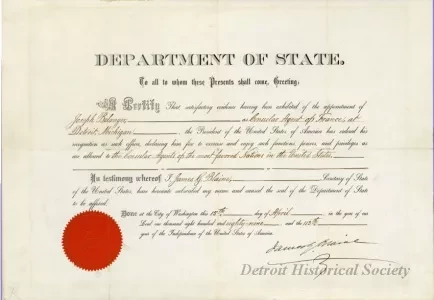 DEPARTMENT OF STATE.
To all to whom these Presents shall come, Greeting.
I Certify That satisfactory evidence having been exhibited of the appointment of
Joseph Belanger as Consular Agent of France, at
Detroit Michigan, the President of the United States of America has caused his
recognition as such officer, declaring him free to exercise and enjoy such functions, powers, and privileges as
are allowed to the Consular Agents of the most favored Nations in the United States.
In testimony whereof I, James G. Blaine, Secretary of State
of the United States, have hereunto subscribed my name and caused the seal of the Department of State
to be affixed.
DONE at the City of Washington this 15th day of April in the year of our
Lord one thousand eight hundred and eighty-nine and the 113th
year of the Independence of the United States of America.
James G. Blaine
Detroit Historical Society